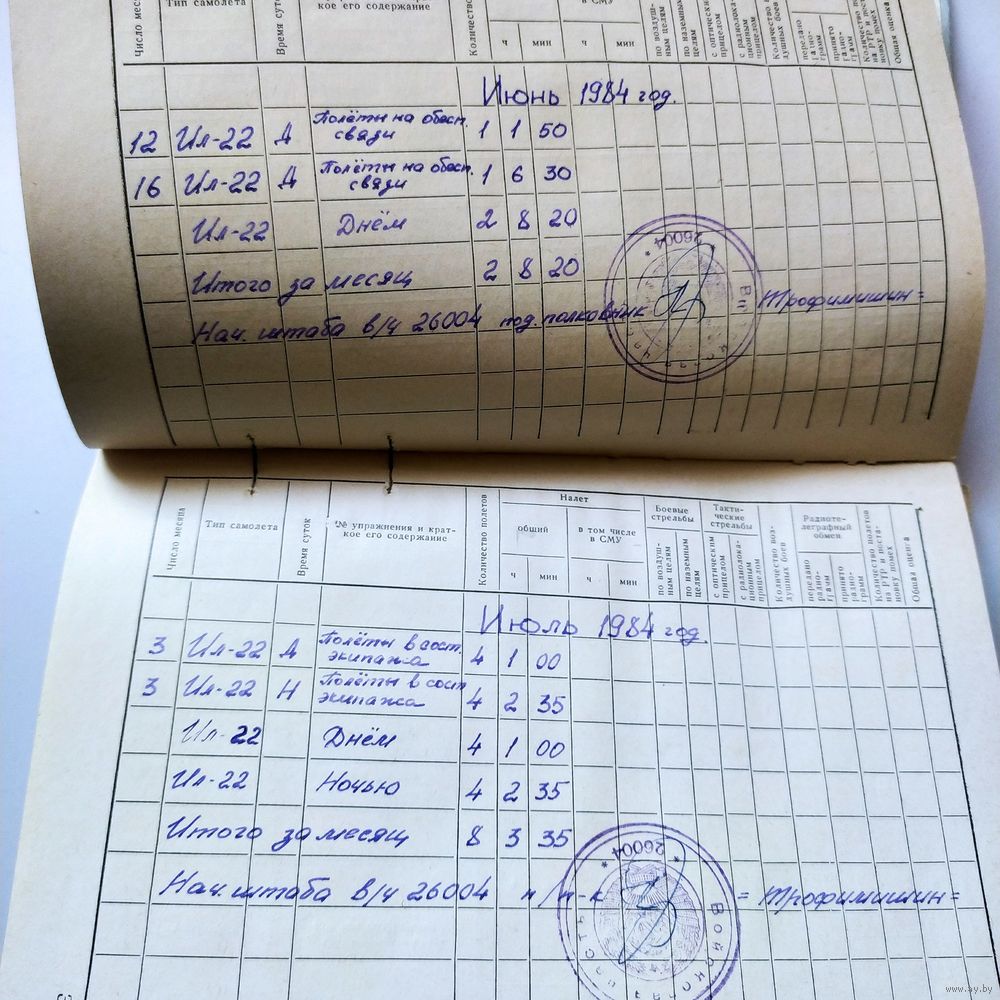 Число месяца
Тип самолета
Время суток
кое его содержание
Количество
в СМУ
ч мин ч мин
по воздушным целям
по наземным целям
с оптическим прицелом
с радиолокационным прицелом
Количество воздушных боев
передано радиограмм
принято радиограмм
Количество полетов на РТР и постановку помех
Общая оценка
Июнь 1984 год.
12 Ил-22 Д Полёты на обесп. связи 1 1 50
16 Ил-22 Д Полёты на обесп. связи 1 6 30
Ил-22 Днём 2 8 20
Итого за месяц 2 8 20
Нач. штаба в/ч 26004 под.полковник Трофимишин =
* 26004 *
Число месяца
Тип самолета
Время суток
№ упражнения и краткое его содержание
Количество полетов
Налет
общий
в том числе в СМУ
ч мин ч мин
Боевые стрельбы
по воздушным целям
по наземным целям
Тактические стрельбы
с оптическим прицелом
с радиолокационным прицелом
Количество воздушных боев
Радиотелеграфный обмен
передано радиограмм
принято радиограмм
Количество полетов на РТР и постановку помех
Общая оценка
Июль 1984 год.
3 Ил-22 Д Полёты в сост. экипажа 4 1 00
3 Ил-22 Н Полёты в сост. экипажа 4 2 35
Ил-22 Днём 4 1 00
Ил-22 Ночью 4 2 35
Итого за месяц 8 3 35
Нач. штаба в/ч 26004 п/п-к = Трофимишин =
* 26004 *
Войсковая часть
www.ay.by